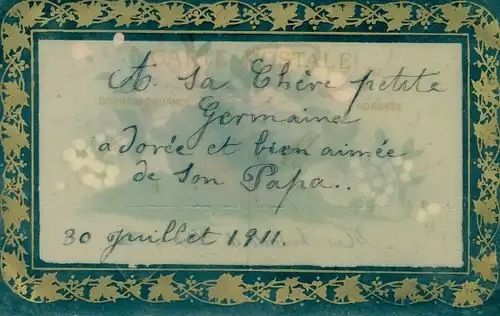 CARTE POSTALE
A sa Chère petite
CORRESPONDANCE
ADRESSE
Germaine
adorée et bien aimée
de son Papa..
30 Juillet 1911.